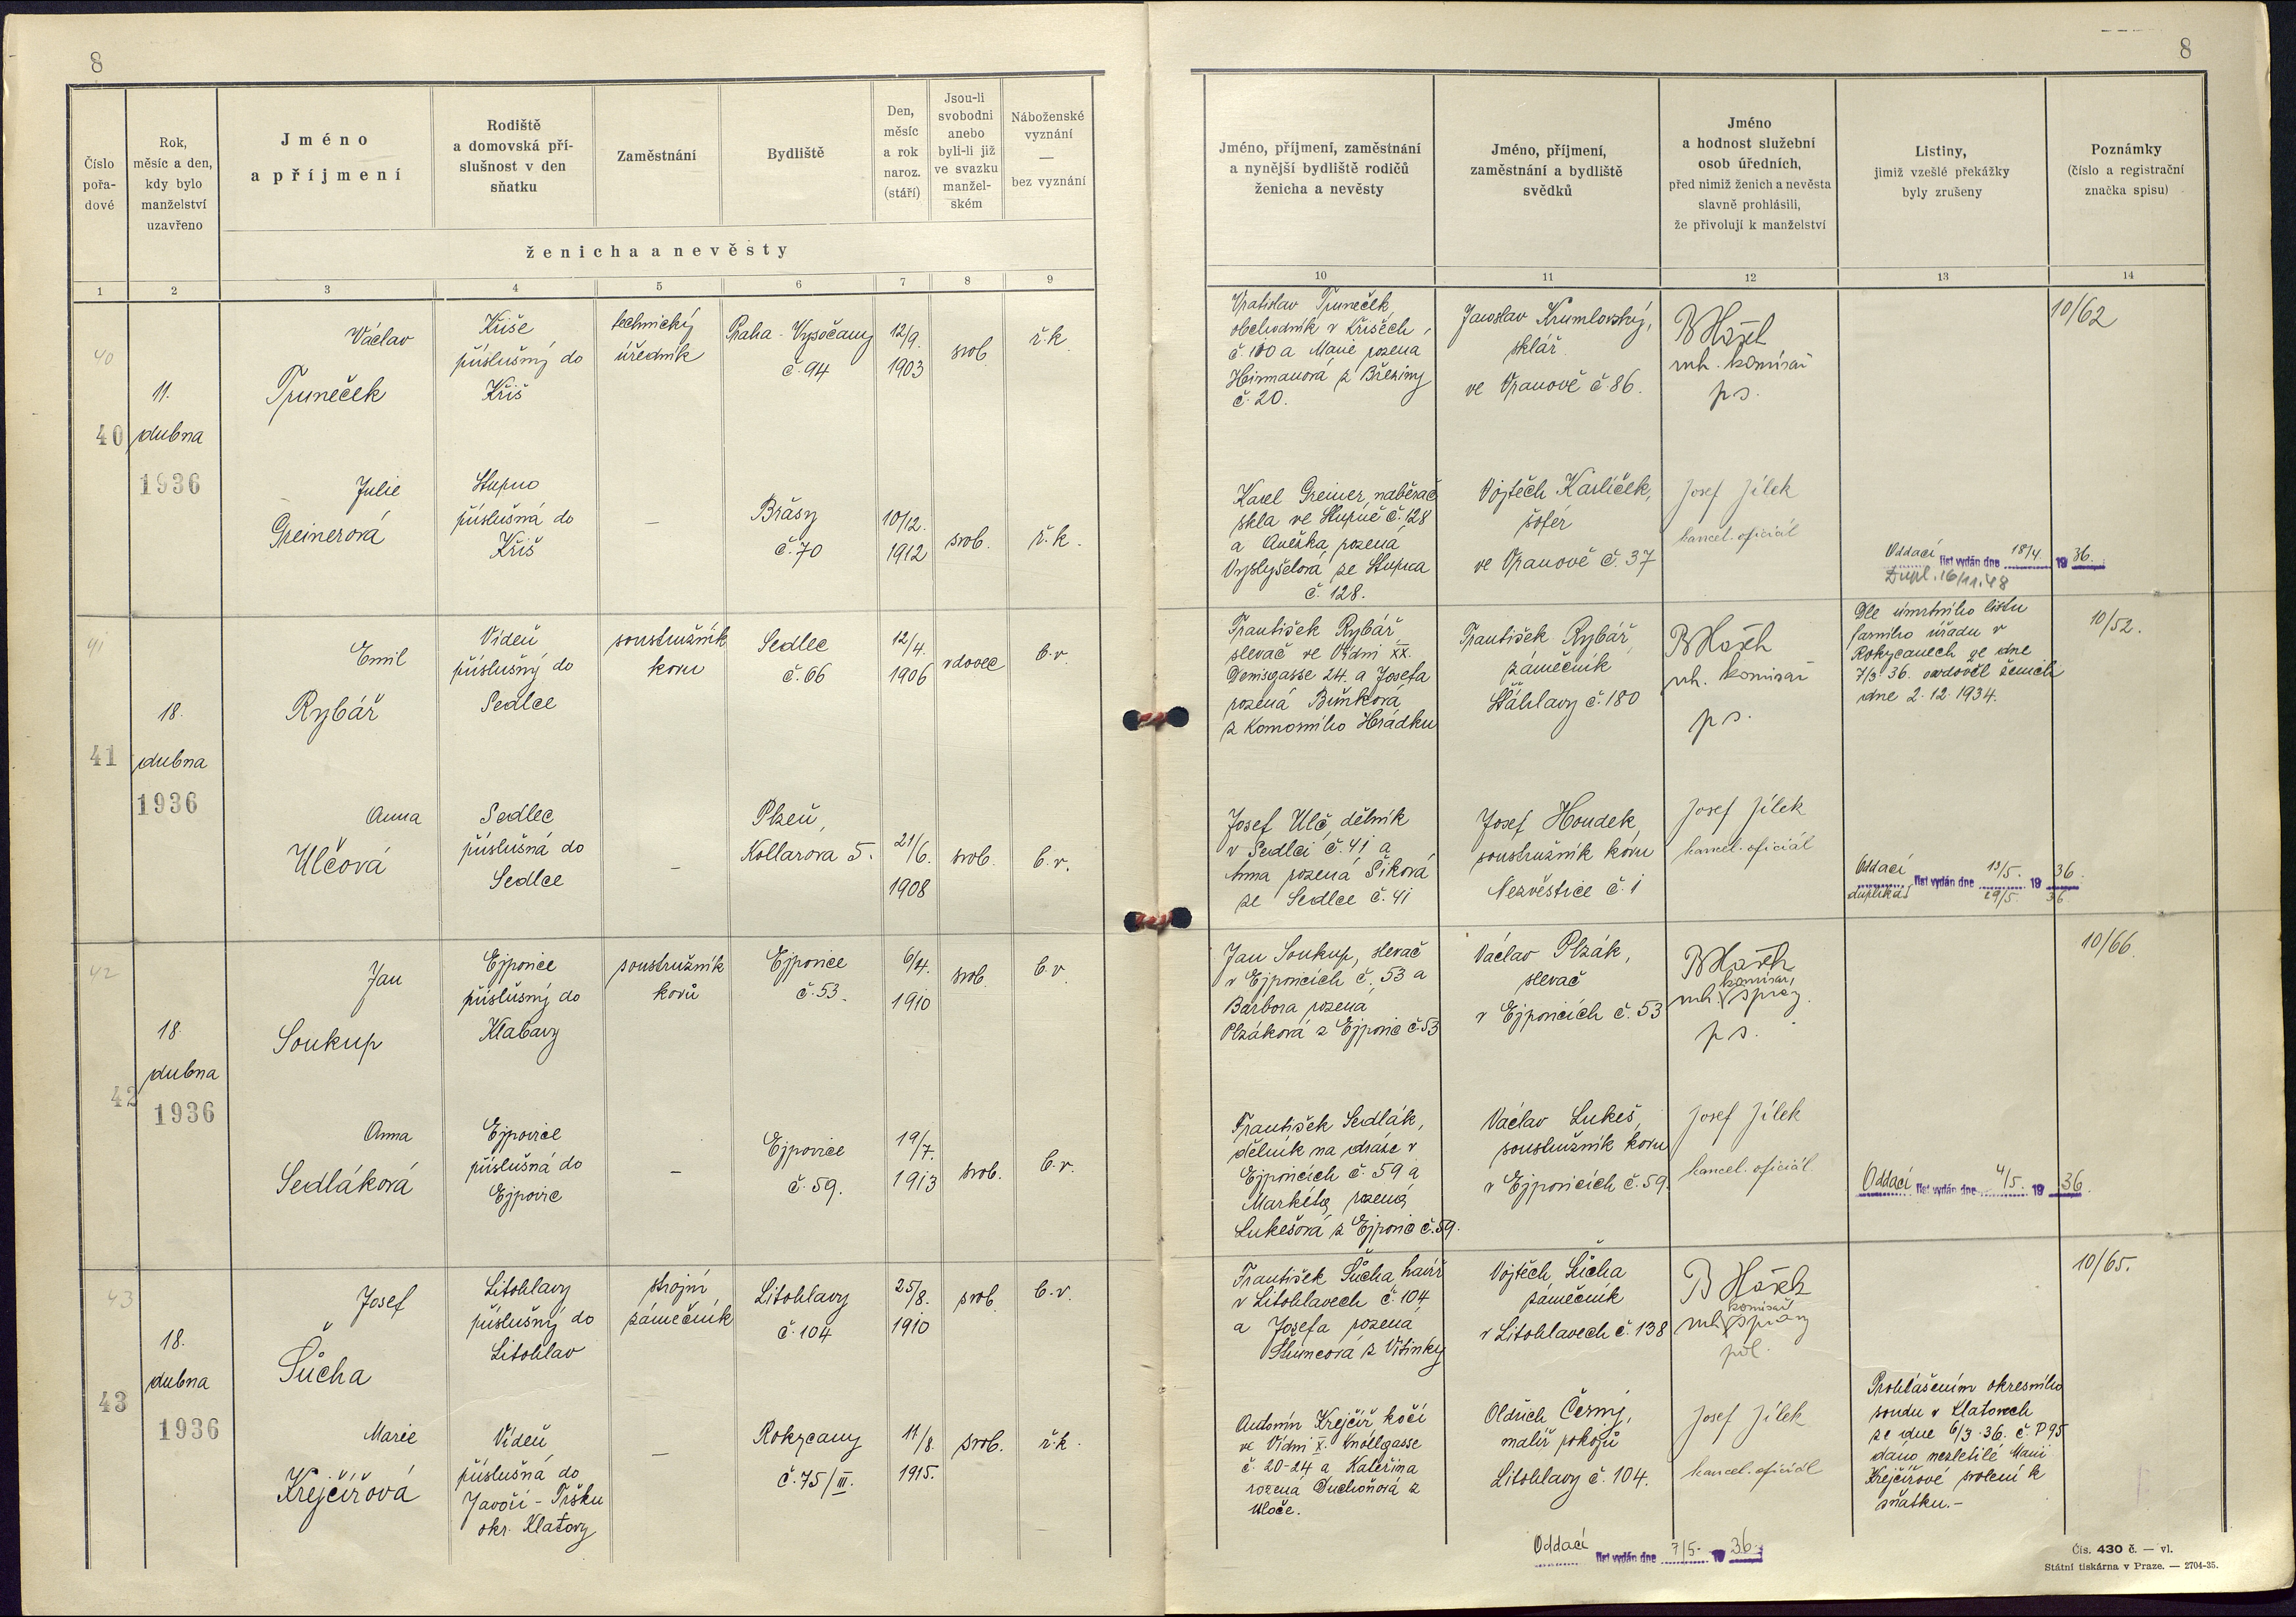 8
Číslo pořa- dové
Rok, měsíc a den, kdy bylo manželství uzavřeno
Jméno a příjmení
Rodiště a domovská pří- slušnost v den sňatku
Zaměstnání
Bydliště
Den, měsíc a rok naroz. (stáří)
Jsou-li svobodni anebo byli-li již ve svazku manžel- ském
Náboženské vyznání — bez vyznání
ženicha a nevěsty
1 2 3 4 5 6 7 8 9
40
40
11.
dubna
1936
Václav
Truneček
Kříše
příslušný do
Kříš
technický
úředník
Praha - Vysočany
č. 94
12/9.
1903
svob.
ř.k.
Julie
Greinerová
Stupno
příslušná do
Kříš
—
Břasy
č. 70
10/12.
1912
svob.
ř.k.
41
41
18.
dubna
1936
Emil
Rybář
Vídeň
příslušný do
Sedlce
soustružník
kovu
Sedlec
č. 66
12/4.
1906
vdovec
b.v.
Anna
Ulčová
Sedlec
příslušná do
Sedlce
—
Plzeň,
Kollarova 5.
21/6.
1908
svob.
b.v.
42
42
18.
dubna
1936
Jan
Soukup
Ejpovice
příslušný do
Klabavy
soustružník
kovů
Ejpovice
č. 53.
6/4.
1910
svob.
b.v.
Anna
Sedláková
Ejpovice
příslušná do
Ejpovic
—
Ejpovice
č. 59.
19/7.
1913
svob.
b.v.
43
43
18.
dubna
1936
Josef
Šůcha
Litohlavy
příslušný do
Litohlav
strojní
zámečník
Litohlavy
č. 104
25/8.
1910
svob.
b.v.
Marie
Krejčířová
Vídeň
příslušná do
Javoří - Tršku
okr. Klatovy
—
Rokycany
č. 75/III.
11/8.
1915.
svob.
ř.k.
8
Jméno, příjmení, zaměstnání a nynější bydliště rodičů ženicha a nevěsty
Jméno, příjmení, zaměstnání a bydliště svědků
Jméno a hodnost služební osob úředních, před nimiž ženich a nevěsta slavně prohlásili, že přivolují k manželství
Listiny, jimiž vzešlé překážky byly zrušeny
Poznámky (číslo a registrační značka spisu)
10 11 12 13 14
Vratislav Truneček,
obchodník v Kříších
č. 100 a Marie rozená
z Březiny
č. 20.
Jaroslav Krumlovský,
sklář
ve Vranově č. 86.
komisař
10/62
Karel Greiner, naběrač
skla ve Stupně č. 128
a Anežka rozená
Vyslyšelová ze Stupna
č. 128.
Vojtěch Karlíček,
šofér
ve Vranově č. 37
Josef Jílek
kancel. oficiál
Oddací list vydán dne 18/4. 1936.
Dupl. 16/11.48
František Rybář
slevač ve Vídni XX.
Denisgasse 24. a Josefa
rozená
z Komorního Hrádku
František Rybář
zámečník
Šťáhlavy č. 180
komisař
Dle úmrtního listu
farního úřadu v
Rokycanech ze dne
7/3 36. ovdověl ženich
dne 2.12.1934.
10/52.
Josef Ulč, dělník
v Sedlci č. 41 a
Anna rozená Šiková
ze Sedlce č. 41
Josef Houdek,
soustružník kovu
Nezvěstice č. 1
Josef Jílek
kancel. oficiál
Oddací list vydán dne 13/5. 1936.
duplikát 29/5. 36.
Jan Soukup, slevač
v Ejpovicích č. 53 a
Barbora rozená
Plzáková z Ejpovic č. 53
Václav Plzák,
slevač
v Ejpovicích č. 53
komisař
10/66
František Sedlák,
dělník na dráze v
Ejpovicích č. 59 a
Markéta rozená
Lukešová z Ejpovic č. 59.
Václav Lukeš,
soustružník kovu
v Ejpovicích č. 59.
Josef Jílek
kancel. oficiál
Oddací list vydán dne 4/5. 1936.
František Šůcha, havíř
v Litohlavech č. 104
a Josefa rozená
z Vitinky
Vojtěch Šůcha
zámečník
v Litohlavech č. 138
komisař
10/65.
Antonín Krejčíř, kočí
ve Vídni X. Knöllgasse
č. 20-24 a Kateřina
rozená Duchoňová z
Oldřich Černý,
malíř pokojů
Litohlavy č. 104.
Josef Jílek
kancel. oficiál
Prohlášením okresního
soudu v Klatovech
ze dne 6/3.36. č. P 95
dáno nezletilé Marii
Krejčířové svolení k
sňatku.-
Oddací list vydán dne 7/5. 1936.
Čís. 430 č. — vl.
Státní tiskárna v Praze. — 2704-35.